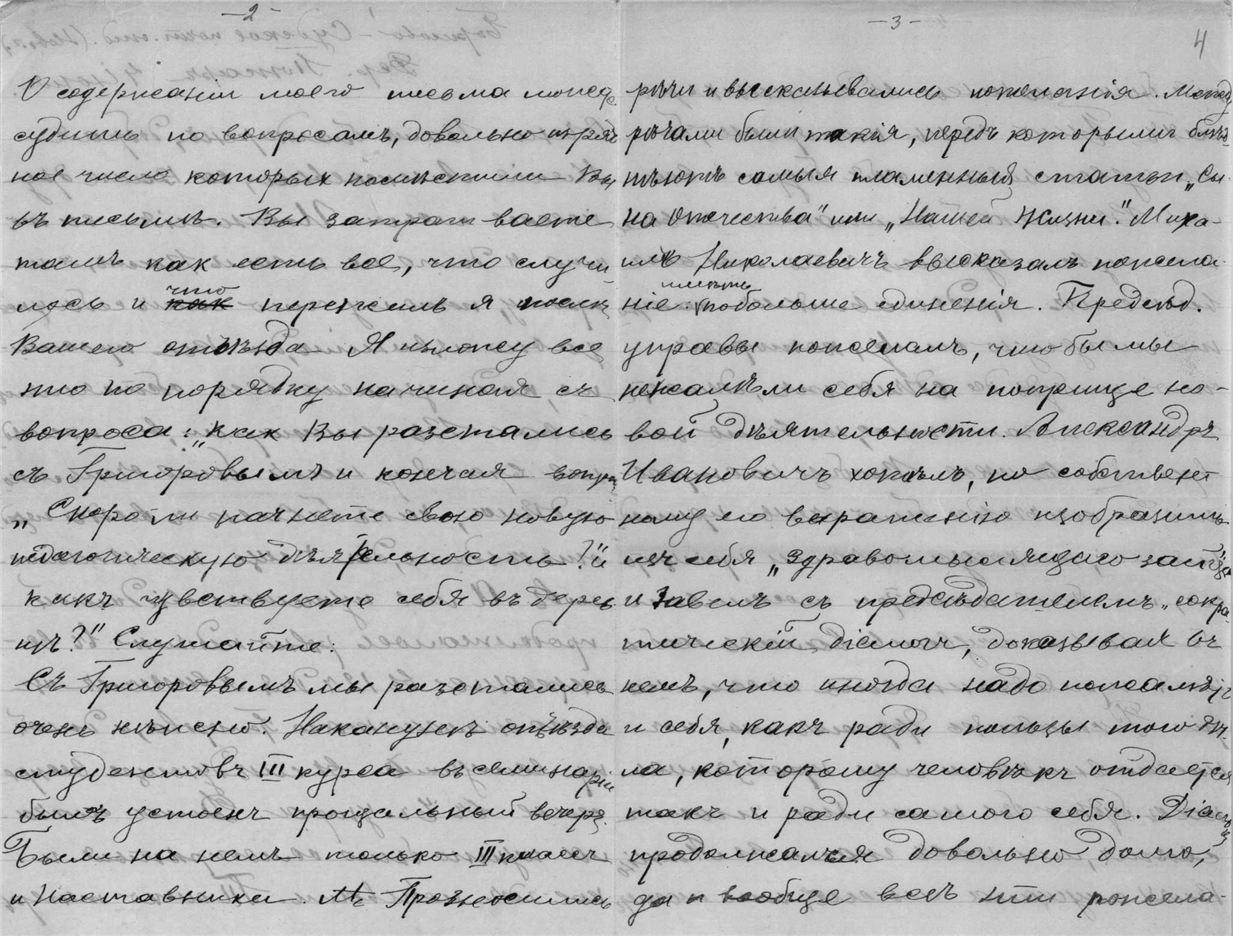 -2-
О содержаніи моего письма можете
судить по вопросамъ, довольно изряд-
ное число которыхъ помѣстили Вы
въ письмѣ. Вы запрашиваете
тамъ какъ есть все, что случи
лось и какъ что пережилъ я послѣ
Вашего отъѣзда. Я изложу все
это по порядку начиная съ
вопроса: „какъ Вы разстались
съ Григоровымъ и кончая вопро
„Скоро ли начнете свою новую
педагогическую дѣятельность?" и
какъ чувствуете себя въ дерев
нѣ?" Слушайте:
Съ Григоровымъ мы разстались
очень нѣжно. Наканунѣ отъѣзда
студентовъ III курса въ семинаріи
былъ устроенъ прощальный вечеръ.
Были на немъ только III классъ
и наставники. Произносились
-3-
4
рѣчи и высказывались пожеланія. Между
рѣчами были такія, передъ которыми блѣд-
нѣютъ самыя пламенныя статьи „Сы-
на Отечества" или „Нашей Жизни". Миха-
илъ Николаевичъ высказалъ пожела-
ніе: имѣть побольше единенія. Предсѣд.
управы пожелалъ, чтобы мы
не жалѣли себя на поприще но-
вой дѣятельности. Александръ
Ивановичъ хотѣлъ, по собствен-
ному его выраженію изобразить
изъ себя „здравомыслящаго зайца"
и завелъ съ предсѣдателемъ „сокра-
тическій" діалогъ, доказывая въ
немъ, что иногда надо пожалѣть
и себя, какъ ради пользы того дѣ-
ла, которому человѣкъ отдается
такъ и ради самого себя. Діалогъ
продолжался довольно долго,
да и вообще всѣ эти пожела-